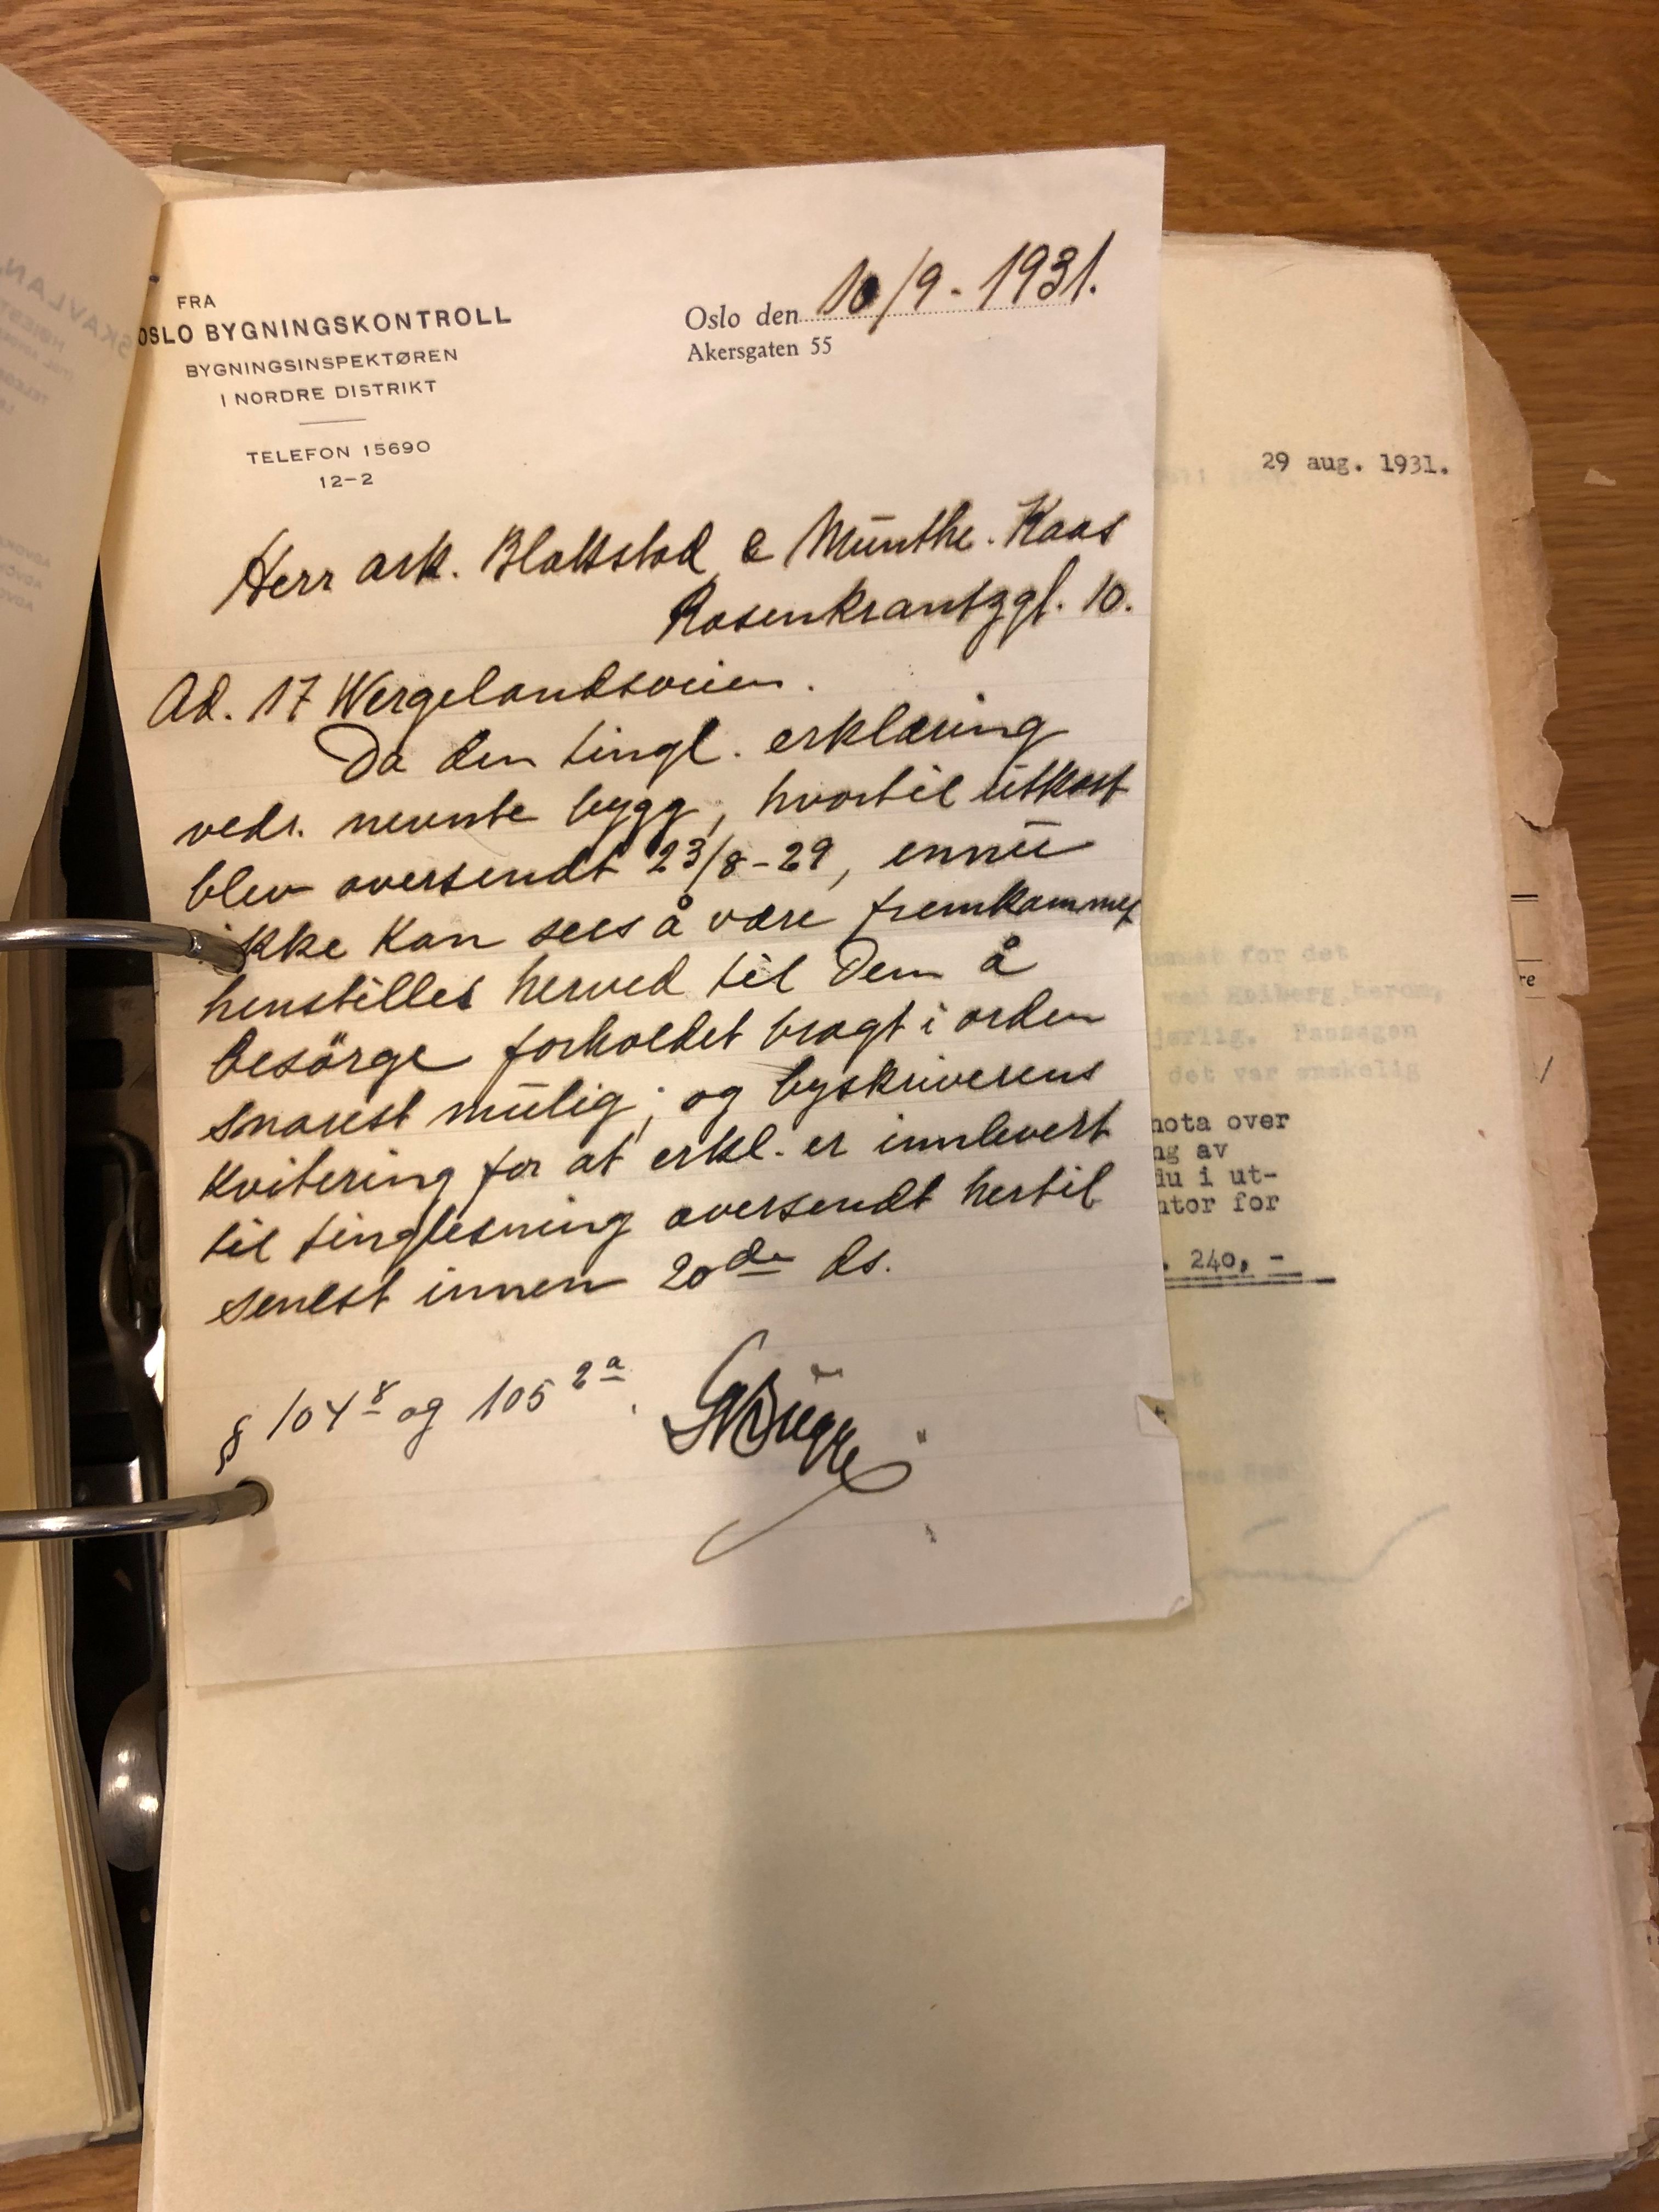 FRA
OSLO BYGNINGSKONTROLL
BYGNINGSINSPEKTØREN
I NORDRE DISTRIKT
TELEFON 15690
12-2
Oslo den 10/9 - 1931.
Akersgaten 55
Herr ark. Blakstad & Munthe-Kaas
Rosenkrantzgt. 10.
Ad. 17 Wergelandsveien.
Da den tingl. erklæring
vedr. nevnte bygg, hvortil utkast
blev oversendt 23/8-29, ennu
ikke kan sees å være fremkommet
henstilles herved til Dem å
besörge forholdet bragt i orden
snarest mulig; og byskriverens
kvitering for at erkl. er innlevert
til tinglesning oversendt hertil
senest innen 20de ds.
§ 104 8 og 105 2a.
29 aug. 1931.
for det
det var ønskelig
nota over
av
du i ut-
for
240, -